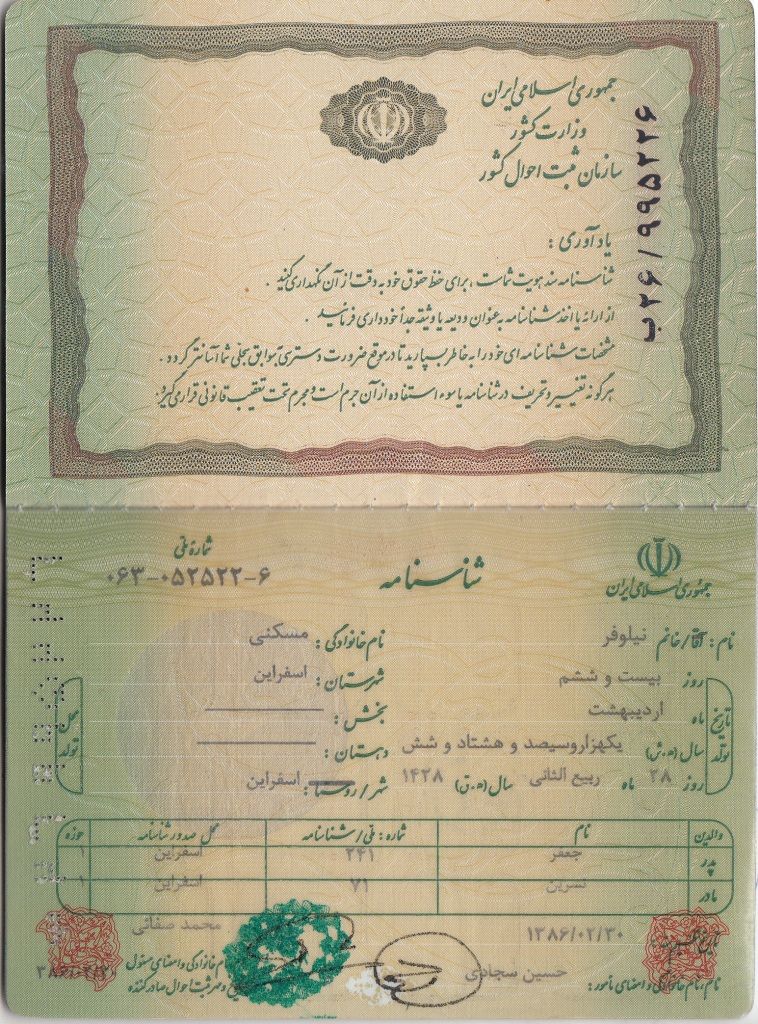 جمهوری اسلامی ایران
وزارت کشور
سازمان ثبت احوال کشور
ب۲۶/۹۹۵۲۲۶
یادآوری :
شناسنامه سند هویت شماست ، برای حفظ حقوق خود به دقت از آن نگهداری کنید .
از ارائه یا اخذ شناسنامه به عنوان ودیعه یا وثیقه جداً خودداری فرمائید .
مشخصات شناسنامه ای خود را به خاطر بسپارید تا در موقع ضرورت دسترسی به سوابق سجلی شما آسانتر گردد .
هر گونه تغییر و تحریف در شناسنامه یا سوء استفاده از آن جرم است و مجرم تحت تعقیب قانونی قرار می گیرد.
جمهوری اسلامی ایران
شناسنامه
شماره ملی
۰۶۳-۰۵۲۵۲۲-۶
نام : آقا/خانم نیلوفر نام خانوادگی : مسکنی
تاریخ تولد
روز بیست و ششم شهرستان : اسفراین
ماه اردیبهشت بخش :
سال (ه.ش) یکهزاروسیصد و هشتاد و شش دهستان :
روز ۲۸ ماه ربیع الثانی سال (ه.ق) ۱۴۲۸ شهر/روستا : اسفراین
محل تولد
والدین نام شماره : ملی/شناسنامه محل صدور شناسنامه حوزه
پدر جعفر ۲۴۱ اسفراین ۱
مادر نسرین ۷۱ اسفراین ۱
۱۳۸۶/۰۲/۳۰ محمد صفائی
نام ونام خانوادگی و امضای مامور: حسین سجادی
نام خانوادگی و امضای مسئول
و مهر ثبت احوال صادر کننده